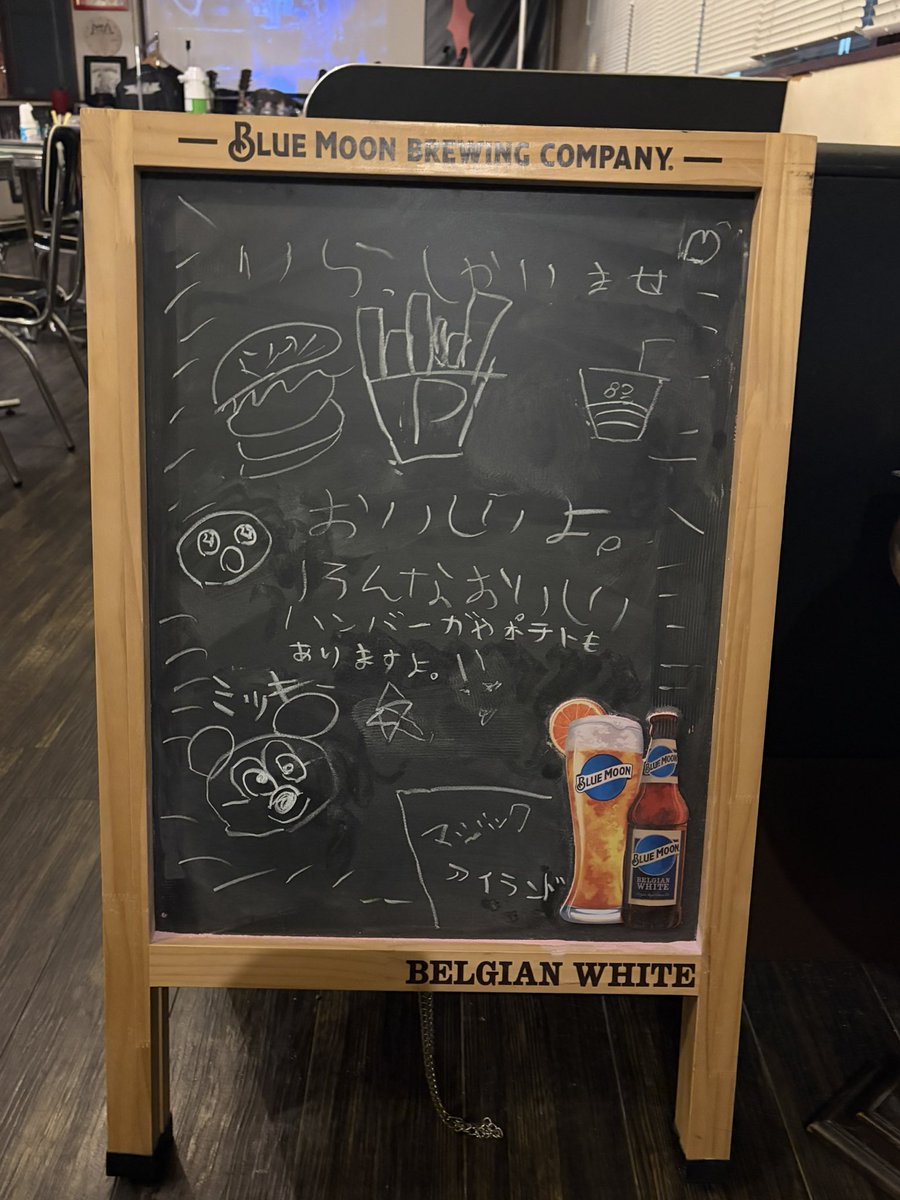 BLUE MOON BREWING COMPANY.
いらっしゃいませ
P
82
おいしいよ。
いろんなおいしい
ハンバーガやポテトも
ありますよ。!!
ミッキー
マジック
アイランド
BLUE MOON
BLUE MOON
BLUE MOON
BELGIAN WHITE
BELGIAN WHITE